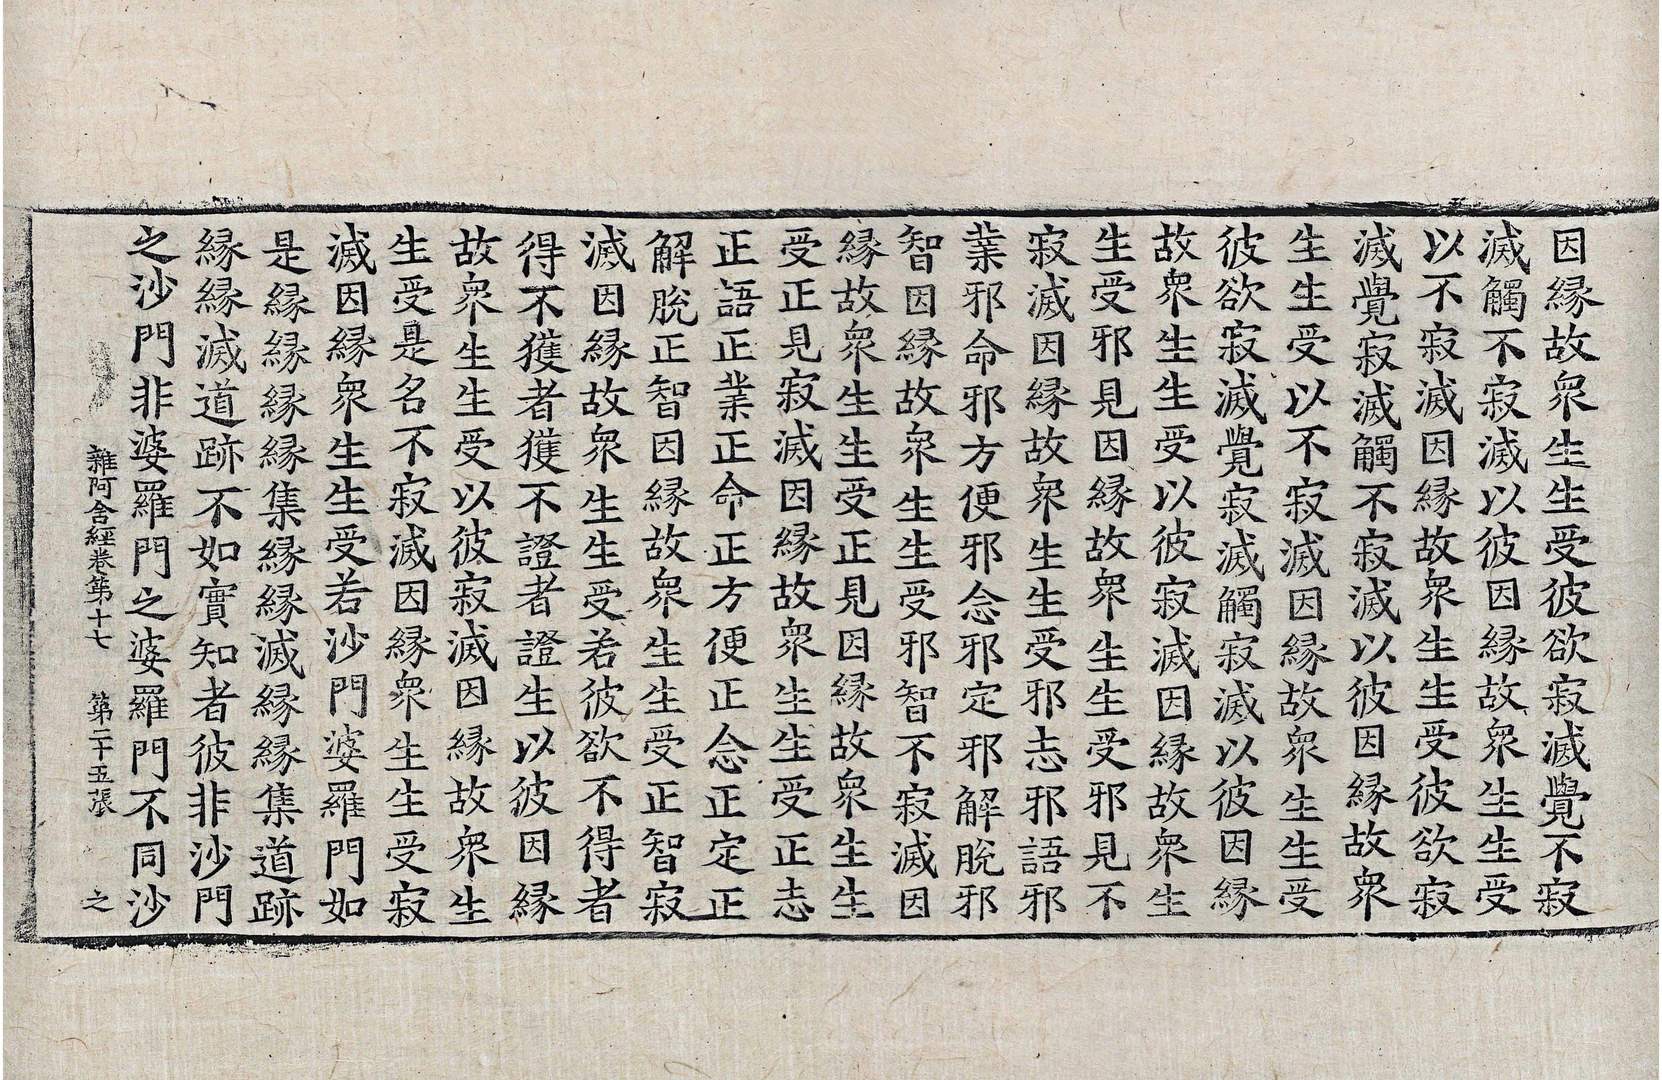 因縁故衆生生受彼欲寂滅覺不寂
滅觸不寂滅以彼因縁故衆生生受
以不寂滅因縁故衆生生受彼欲寂
滅覺寂滅觸不寂滅以彼因縁故衆
生生受以不寂滅因縁故衆生生受
彼欲寂滅覺寂滅觸寂滅以彼因縁
故衆生生受以彼寂滅因縁故衆生
生受邪見因縁故衆生生受邪見不
寂滅因縁故衆生生受邪志邪語邪
業邪命邪方便邪念邪定邪解脫邪
智因縁故衆生生受邪智不寂滅因
縁故衆生生受正見因縁故衆生生
受正見寂滅因縁故衆生生受正志
正語正業正命正方便正念正定正
解脫正智因縁故衆生生受正智寂
滅因縁故衆生生受若彼欲不得者
得不獲者獲不證者證生以彼因縁
故衆生生受以彼寂滅因縁故衆生
生受是名不寂滅因縁衆生生受寂
滅因縁衆生生受若沙門婆羅門如
是縁縁縁縁集縁縁滅縁縁集道跡
縁縁滅道跡不如實知者彼非沙門
之沙門非婆羅門之婆羅門不同沙
雜阿含經卷第十七 第二十五張 之